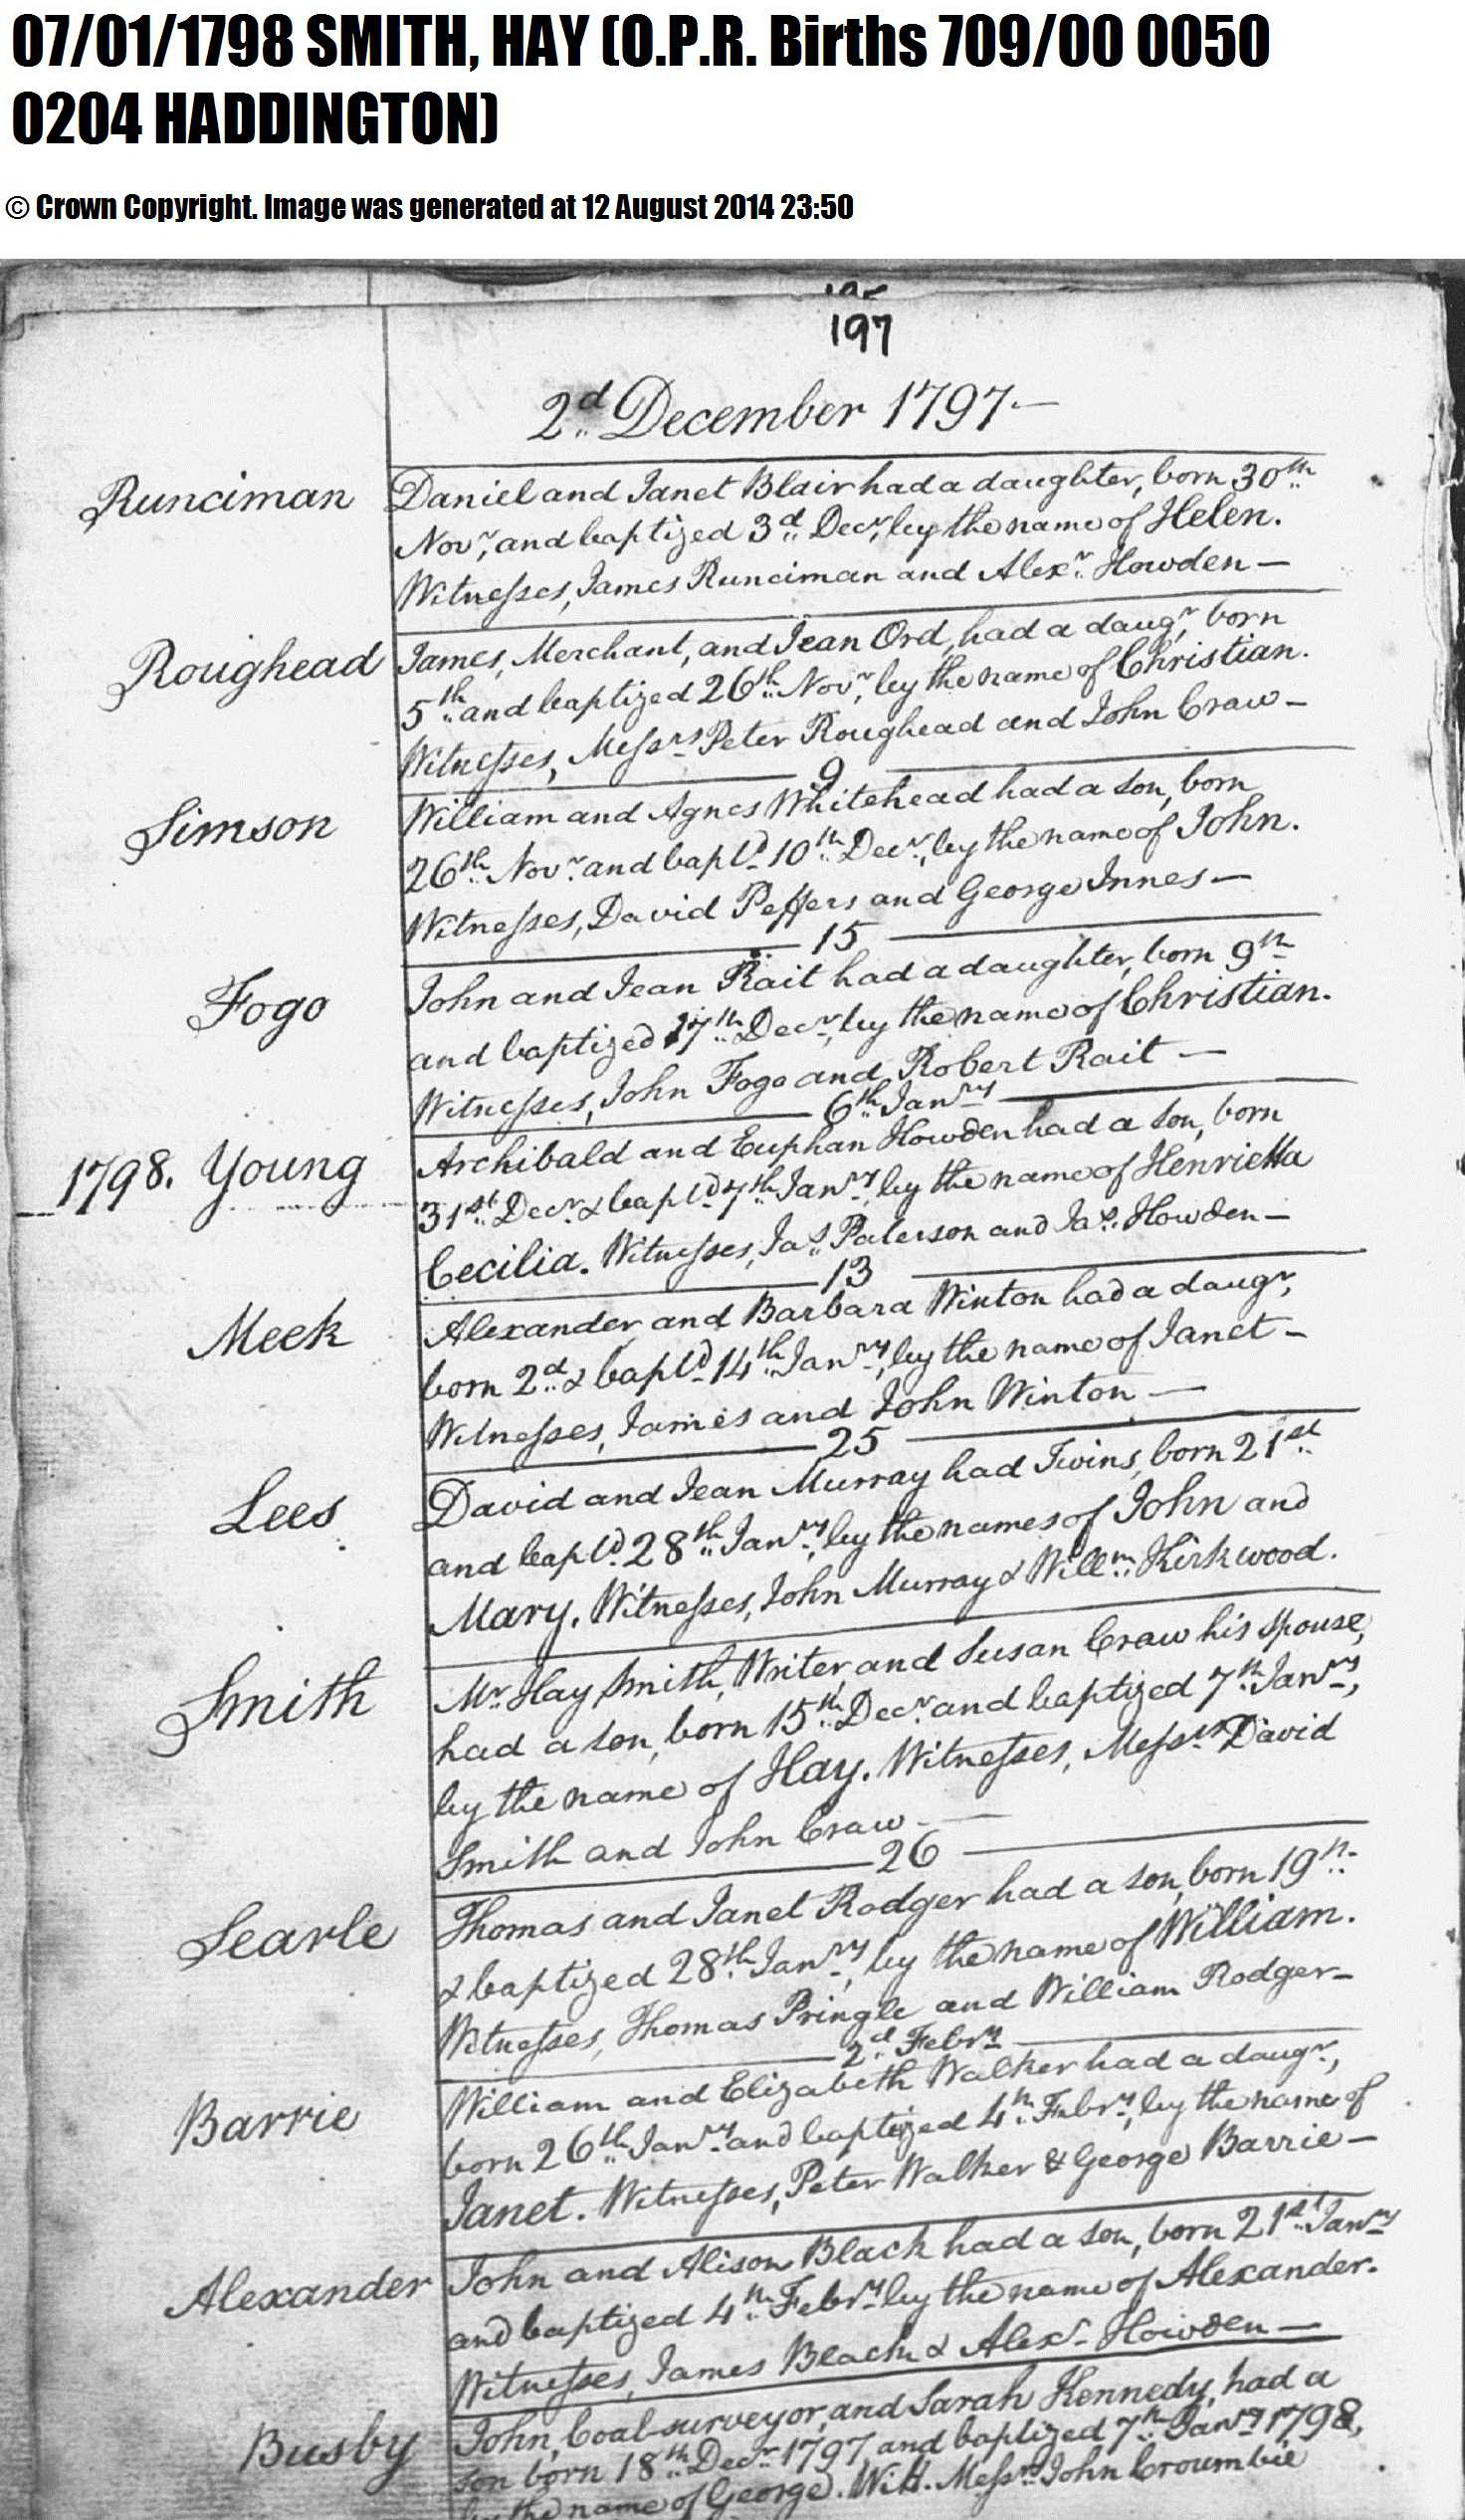 07/01/1798 SMITH, HAY (O.P.R. Births 709/00 0050
0204 HADDINGTON)
© Crown Copyright. Image was generated at 12 August 2014 23:50
197
2d December 1797 —
Runciman Daniel and Janet Blair had a daughter, born 30th
Novr, and baptized 3d Decr, by the name of Helen.
Witnesses, James Runciman and Alexr Howden —
Roughead James, Merchant, and Jean Ord, had a daugr, born
5th and baptized 26th Novr, by the name of Christian.
Witnesses, Messrs Peter Roughead and John Craw —
9
Simson William and Agnes Whitehead had a son, born
26th Novr and baptd 10th Decr, by the name of John.
Witnesses, David Peffers and George Innes —
15
Fogo John and Jean Rait had a daughter, born 9th
and baptized 17th Decr, by the name of Christian.
Witnesses, John Fogo and Robert Rait —
6th Janry
1798. Young Archibald and Euphan Howden had a son, born
31st Decr & baptd 7th Janry, by the name of Henrietta
Cecilia. Witnesses, Jas Paterson and Jas Howden —
13
Meek Alexander and Barbara Winton had a daugr,
born 2d & baptd 14th Janry, by the name of Janet —
Witnesses, James and John Winton —
25
Lees David and Jean Murray had Twins, born 21st
and baptd 28th Janry, by the names of John and
Mary. Witnesses, John Murray & Willm Kirkwood.
Smith Mr Hay Smith, Writer, and Susan Craw his spouse,
had a son, born 15th Decr and baptized 7th Janry,
by the name of Hay. Witnesses, Messrs David
Smith and John Craw —
26
Searle Thomas and Janet Rodger had a son, born 19th
& baptized 28th Janry, by the name of William.
Witnesses, Thomas Pringle and William Rodger —
2d Febry
Barrie William and Elizabeth Walker had a daugr,
born 26th Janry and baptized 4th Febry, by the name of
Janet. Witnesses, Peter Walker & George Barrie —
Alexander John and Alison Black had a son, born 21st Janry
and baptized 4th Febry by the name of Alexander.
Witnesses, James Black & Alexr Howden —
Busby John, Coal-surveyor, and Sarah Kennedy, had a
son born 18th Decr 1797, and baptized 7th Janry 1798,
by the name of George. Witt. Messrs John Croumbie